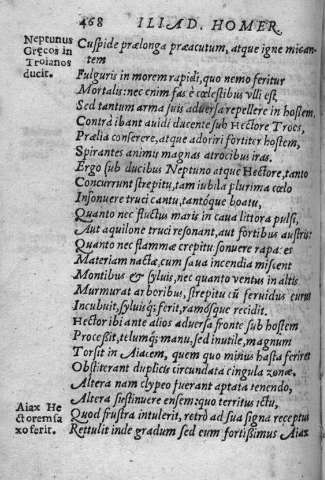 468 ILIAD. HOMER.
Neptunus
Gręcos in
Troianos
ducit.
Cuspide prælonga præacutum, atque igne mican-
tem
Fulguris in morem rapidi, quo nemo feritur
Mortalis: nec enim fas è cœlestibus vlli est,
Sed tantum arma suis aduersa repellere in hostem.
Contrà ibant auidi ducente sub Hectore Troes,
Prælia conserere, atque adoriri fortiter hostem,
Spirantes animis magnas atrocibus iras.
Ergo sub ducibus Neptuno atque Hectore, tanto
Concurrunt strepitu, tam iubila plurima cœlo
Insonuere truci cantu, tantóque boatu,
Quanto nec fluctus maris in caua littora pulsi,
Aut aquilone truci resonant, aut fortibus austris
Quanto nec flammæ crepitu sonuere rapaces
Materiam nactæ, cum sæua incendia miscent
Montibus & syluis, nec quanto ventus in altis
Murmurat arboribus, strepitu cũ feruidus eurus
Incubuit, syluisq́; ferit, ramósque recidit.
Hector ibi ante alios aduersa fronte sub hostem
Proceßit, telumq́; manu, sed inutile, magnum
Torsit in Aiacem, quem quo minus hasta feriret
Obstiterant duplicis circundata cingula zonæ,
Altera nam clypeo fuerant aptata tenendo,
Altera sustinuere ensem: quo territus ictu,
Aiax He
ctorem sa
xo ferit.
Quod frustra intulerit, retrò ad sua signa receptus
Rettulit inde gradum sed eum fortißimus Aiax